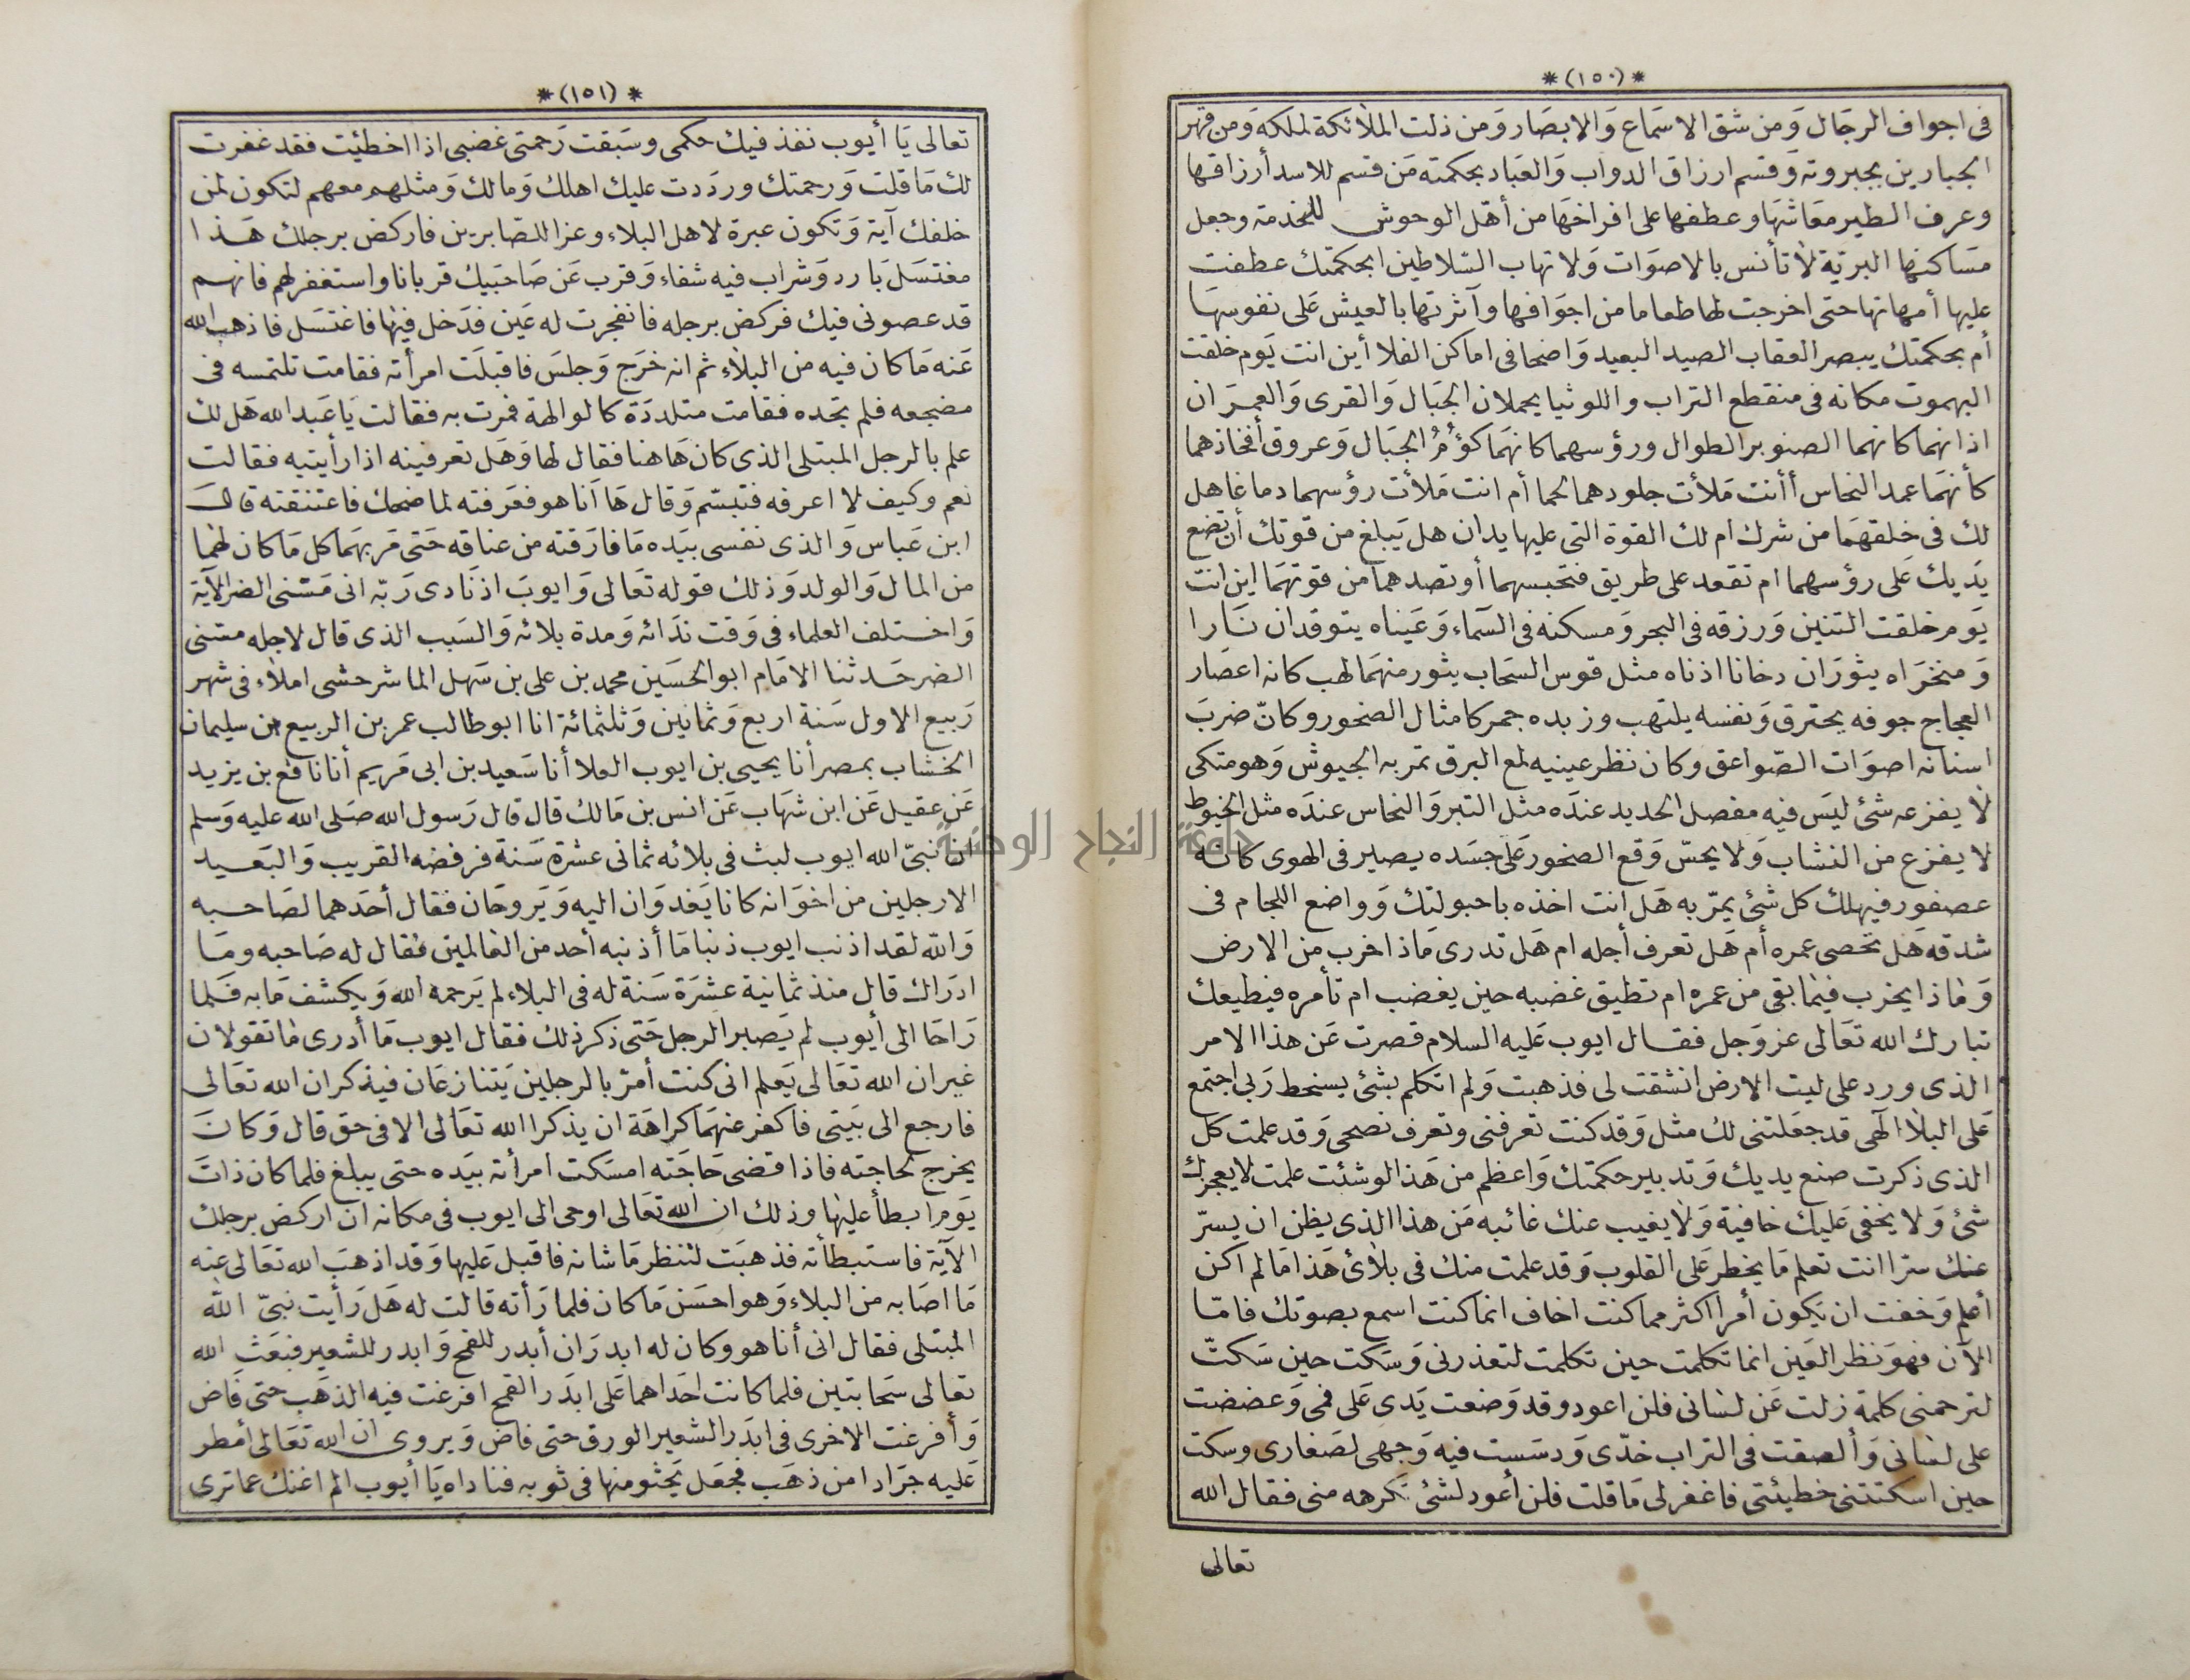 *(١٥٠)*
فى اجواف الرجَال وَمن شق الاسمَاع وَالابصَار وَمن ذلت الملائكة لملكه وَمن قهر
الجبارين بجبروته وَقسم ارزاق الدواب وَالعبَاد بحكمته مَن قسم للاسد أرزاقها
وعرف الطير معَاشهَا وعطفها على افراخهَا من أهّل الوحوش للخدمة وجعل
مسَاكنها البريّة لا تأنس بالاصوَات وَلا تهاب السّلاطين ابحكمتك عطفت
عليها أمهاتها حتى اخرجت لها طعاما من اجوَافها وآثرتها بالعيش عَلى نفوسهَا
أم بحكمتك يبصر العقاب الصيد البعيد وَاضحا فى اماكن الفلا أين انت يَوم خلقت
البهموت مكانه فى منقطع التراب واللوثيا يحملان الجبَال وَالقرى وَالعمرَان
اذانهما كانهما الصنوبر الطوال ورؤسهما كانهمَا كؤُمُرُ الجبَال وَعروق أفخاذهما
كأنهَما عمد النحاس أأنت مَلأت جلودهما لحما أم انت مَلأت رؤسهما دماغا هل
لك فى خلقهمَا من شرك ام لك القوة التى عليها يدان هل يَبلغ من قوتك أن تضع
يَديك عَلى رؤسهما ام تقعد على طريق فتحبسهما أو تصدهما من قوتهمَا اين انت
يَوم خلقت التنين وَرزقه فى البحر وَمسكنه فى السمَاء وَعَيناه يتوقدان نَارا
وَمنخرَاه يثورَان دخانا اذناه مثل قوس السحَاب يثور منهمَا لهب كانه اعصَار
العجاج جوفه يحترق وَنفسه يلتهب وزبده جمر كامثال الصخور وكانّ ضربَ
اسنانه اصوَات الصّواعق وكان نظر عينيه لمع البرق تمر به الجيوش وَهو متكى
لا يفزعه شئ ليَس فيه مفصل الحديد عندَه مثل التبر وَالنحاس عندَه مثل الخيوط
لا يفزع من النشاب وَلا يحسّ وَقع الصخور عَلى جسَده يصير فى الهوى كانه
عصفور فيهلك كل شئ يمّر به هَل انت اخذه باحبولتك وَواضع اللجام فى
شدقه هَل تحصى عمره أم هَل تعرف أجله ام هَل تدرى مَاذا خرب من الارض
وَماذا يخرب فيمَا بقى من عمره ام تطيق غضبه حين يغضب ام تأمره فيطيعك
تبارك الله تعَالى عز وَجل فقال ايوب عَليه السلام قصرت عَن هذا الامر
الذى ورد على ليت الارض انشقت لى فذهبت وَلم اتكلم بشئ يسخط رَبى اجتمع
عَلى البلا الهى قد جعَلتنى لك مثل وَقد كنت تعرفنى وتعرف نصحى وَقد علمت كل
الذى ذكرت صنع يديك وَتدبير حكمتك وَاعظم من هَذا لو شئت علمت لا يعجزك
شئ وَلا يخفى عَليك خافية وَلا يغيب عنك غائبه مَن هذا الذى يظن ان يسرّ
عنك سرّا انت تعلم مَا يخطر عَلى القلوب وَقد علمت منك فى بلائ هَذا مَا لم اكن
أعلم وَخفت ان يكون أمرا اكثر مما كنت اخاف انما كنت اسمع بصوتك فامّا
الآن فهوَ نظر العَين انما تكلمت حين تكلمت لتعذرنى وَسَكت حين سَكتّ
لترحمنى كلمة زلت عَن لسانى فلن اعود وقد وَضعت يَدى عَلى فمى وَعضضت
على لسانى وَألصقت فى التراب خدّى وَدسَست فيه وَجهى لصَغارى وسكت
حين اسكتتنى خطيئتى فاغفر لى مَا قلت فلن أعود لشئ تكرهه منى فقال الله
تعالى
*(١٥١)*
تعالى يَا أيوب نفذ فيك حكمى وسَبقت رَحمتى غضبى اذا اخطئت فقد غفرت
لك مَا قلت وَرحمتك وردَدت عليك اهلك وَمالك وَمثلهم معهم لتكون لمن
خلفك آية وَتكون عبرة لاهل البلاء وعزا للصّابرين فاركض برجلك هَذا
مغتسَل بَارد وَشراب فيه شفاء وَقرب عَن صَاحبَيك قربانا واستغفر لهم فانهم
قد عصونى فيك فركض برجله فانفجرت له عَين فدَخل فيها فاغتسَل فاذهب الله
عَنه مَا كان فيه من البلاء ثم انه خرَج وَجلسَ فاقبلَت امرأته فقامت تلتمسه فى
مضجعه فلم تجده فقامت متلددَة كالوالهة فمرت به فقالت يَا عَبد الله هَل لك
علم بالرجل المبتلى الذى كان هَاهنا فقال لها وَهَل تعرفينه اذا رأيتيه فقالت
نعم وكيف لا اعرفه فتبسّم وَقال هَا أنا هو فعَرفته لما ضحك فاعتنقته قال
ابن عَباس وَالذى نفسى بيَده مَا فارَقته من عناقه حَتى مَر بهمَا كل مَا كان لهمَا
من المال وَالولد وَذلك قوله تعَالى وَايوبَ اذ نَادى رَبّه انى مَسّنى الضر الآية
وَاختلف العلماء فى وَقت ندَائه وَمدة بلائه وَالسَبب الذى قال لاجله مسّنى
الضر حَدثنا الامَام ابو الحسَين محمد بن على بن سَهل الماسرخسى املاء فى شهر
رَبيع الاول سَنة اربع وَثمانين وَثلثمائة انا ابو طالب عمر بن الربيع بن سليمان
الخشاب بمصر أنا يحيى بن ايوب العلا أنا سَعيد بن ابى مَريم أنا نافع بن يزيد
عَن عقيل عَن ابن شهَاب عَن انس بن مَالك قال قال رَسول الله صَلى الله عليه وَسلم
ان نبىّ الله ايوب لبث فى بلائه ثمانى عشرة سَنة فرفضه القريب وَالبَعيد
الارجلين من اخوَانه كانا يَغدوَان اليه وَيَروحَان فقال أحَدهما لصَاحبه
وَالله لقد اذنب ايوب ذنبا مَا أذنبه أحد من العالمين فقال له صَاحبه ومَا
ادرَاك قال منذ ثمانية عشرَة سَنة له فى البلاء لم يَرحمه الله وَيكشف مَا به فَلما
رَاحَا الى أيوب لم يَصبر الرجل حَتى ذكر ذلك فقال ايوب مَا أدرى مَا تقولان
غير ان الله تعَالى يَعلم انى كنت أمرّ بالرجلين يَتنازعَان فيذكران الله تعَالى
فارجع الى بَيتى فاكفر عنهمَا كراهَة ان يذكرا الله تعَالى الا فى حق قال وَكانَ
يخرج لحاجته فاذا قضى حَاجَته امسَكت امرأته بيَده حتى يبلغ فلما كان ذاتَ
يَوم ابطأ عليها وذلك ان الله تعَالى اوحى الى ايوب فى مكانه ان اركض برجلك
الآية فاستبطأته فذهبَت لتنظر مَا شانه فاقبل عَليها وَقد اذهبَ الله تعَالى عنه
مَا اصَابه من البلاء وَهو احسَن مَا كان فلما رَأته قالت له هَل رَأيت نبىّ الله
المبتلى فقال انى أنا هو وكان له ابدرَان أبدر للقمح وَابدر للشعير فبَعَث الله
تعالى سَحابتين فلما كانت احَداهما عَلى ابدَر القمح افرغت فيه الذهَب حتى فاض
وَأفرغت الاخرى فى ابدَر الشعير الورق حتى فاض وَيروى ان الله تعَالى أمطر
عَليه جرَادا من ذهَب فجعَل يَحثو منها فى ثوبه فناداه يَا أيوب الم اغنك عما ترى
جامعة النجاح الوطنية